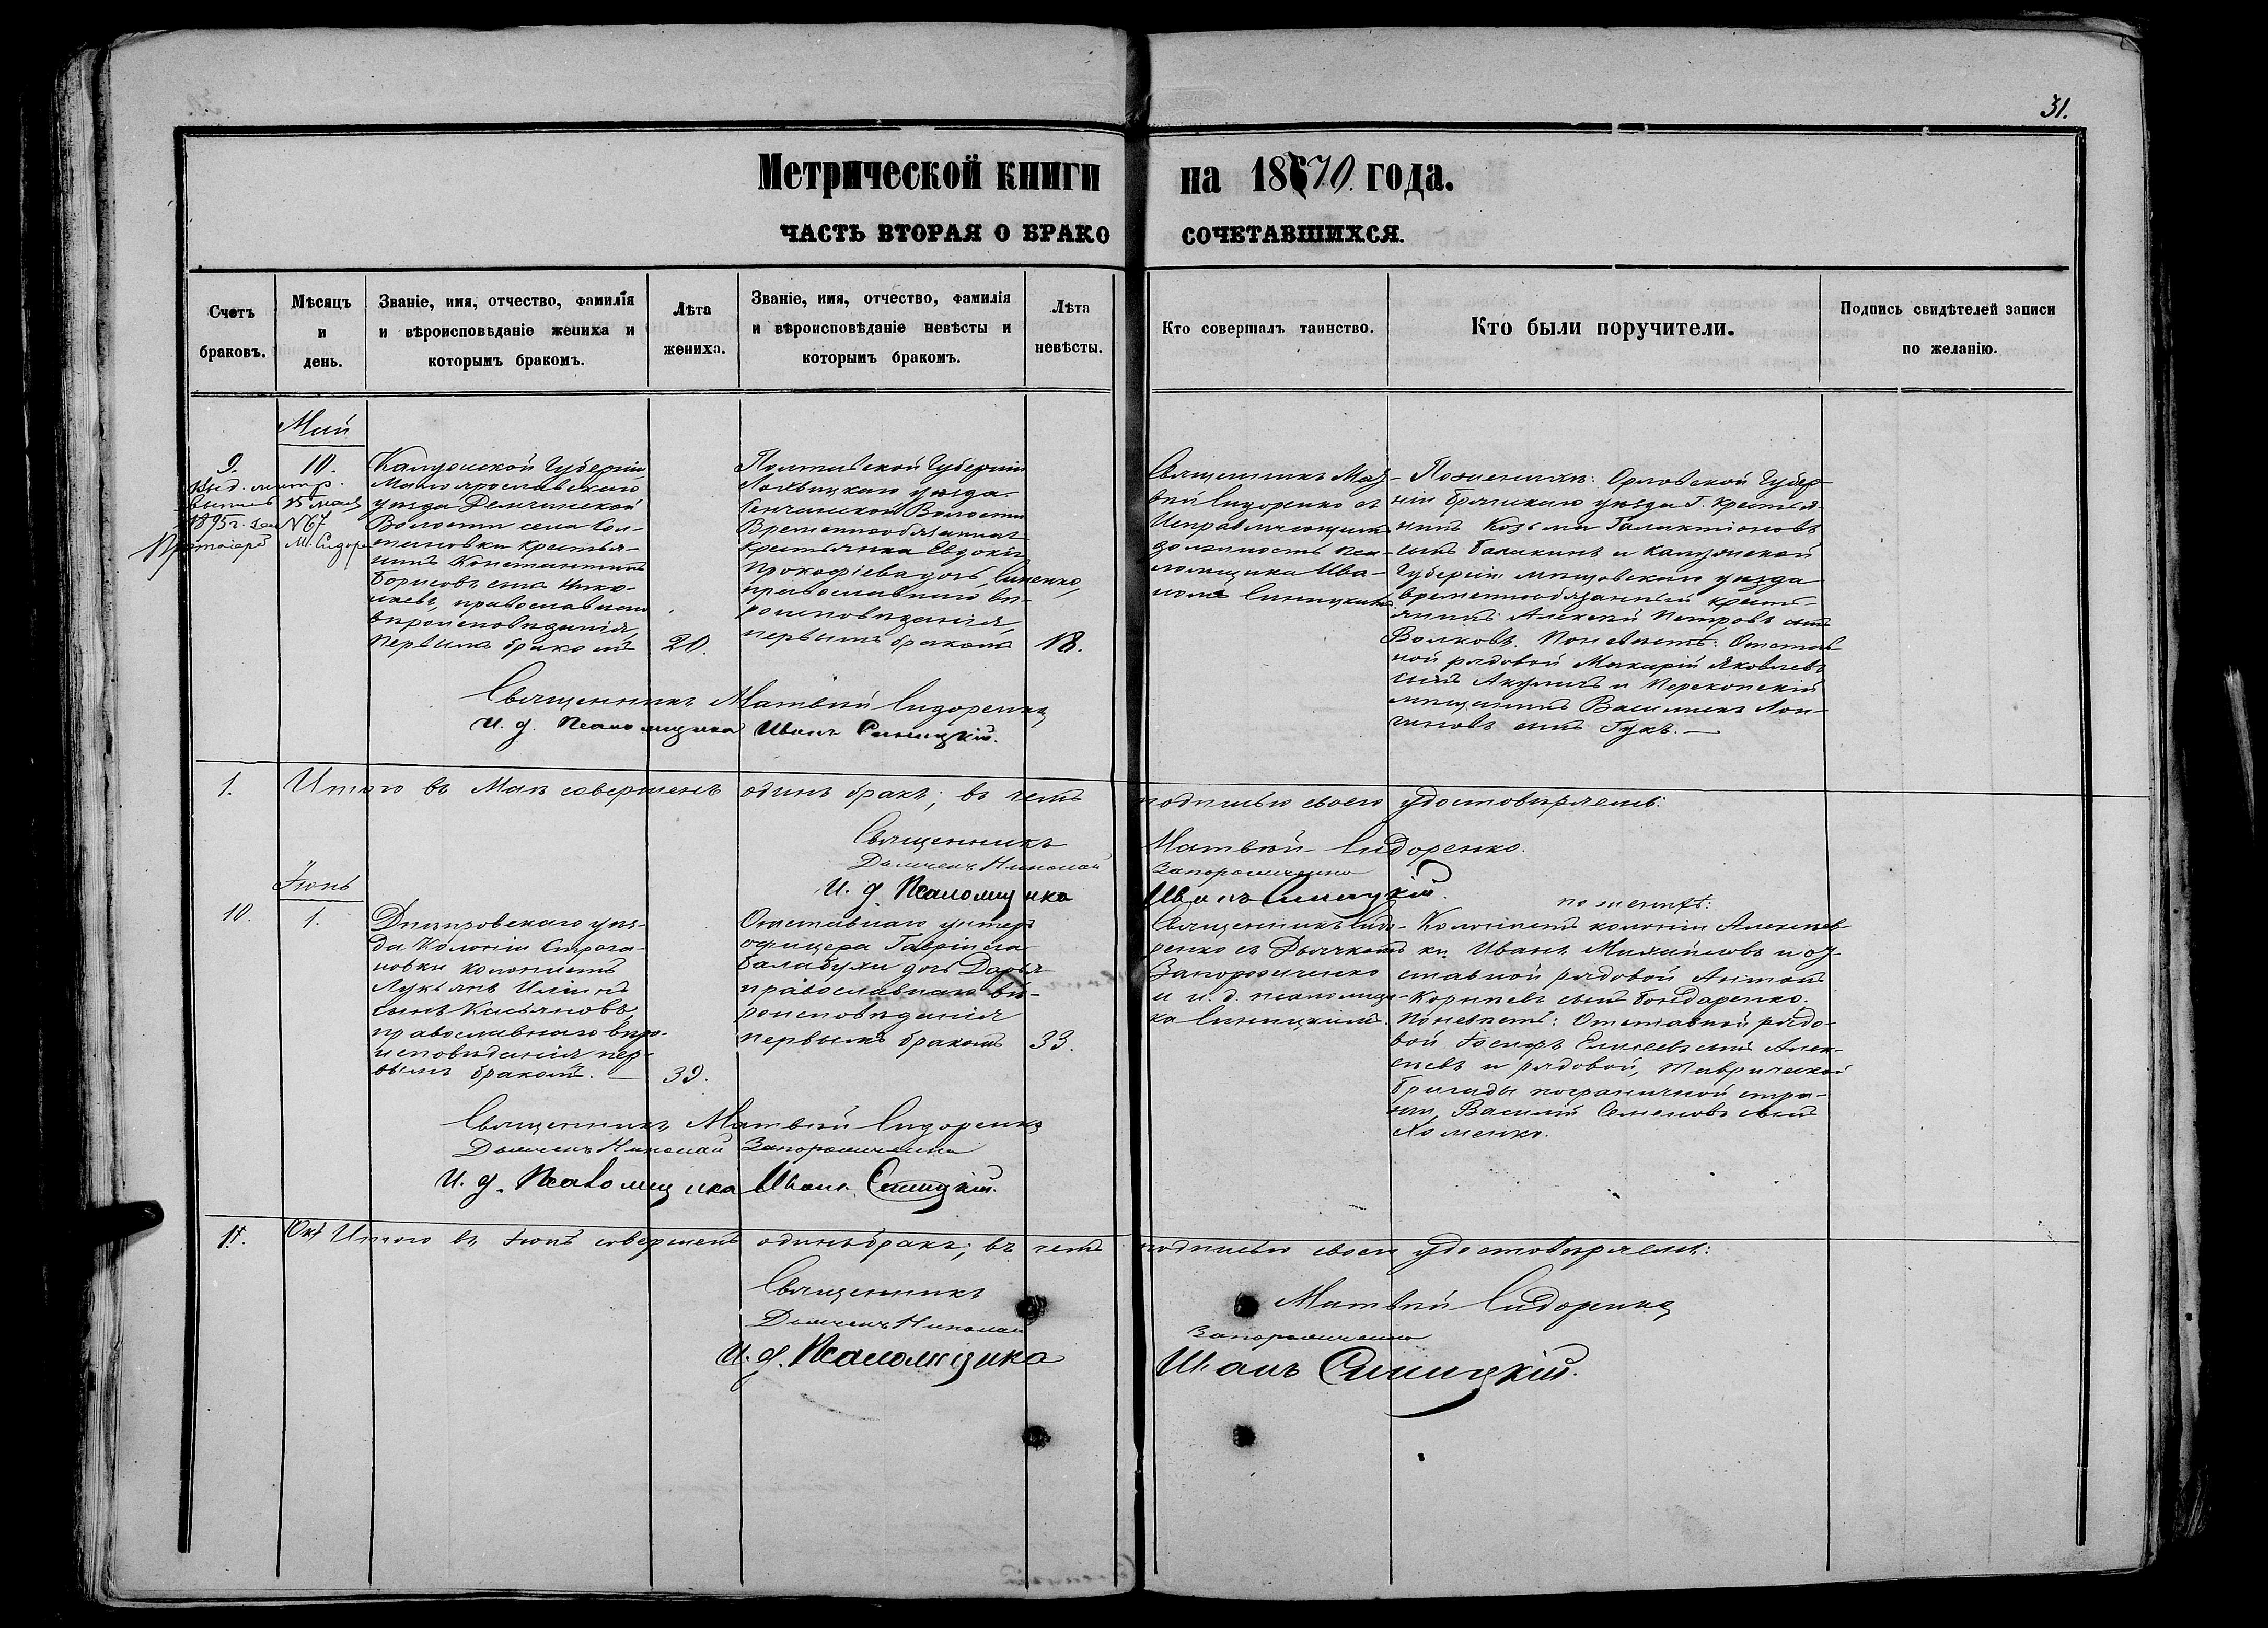 31.
Метрической книги на 1870 года.
ЧАСТЬ ВТОРАЯ О БРАКО СОЧЕТАВШИХСЯ.
Счетъ
браковъ.
Мѣсяцъ
и
день.
Званіе, имя, отчество, фамилія
и вѣроисповѣданіе жениха и
которымъ бракомъ.
Лѣта
жениха.
Званіе, имя, отчество, фамилія
и вѣроисповѣданіе невѣсты и
которымъ бракомъ.
Лѣта
невѣсты.
Кто совершалъ таинство.
Кто были поручители.
Подпись свидѣтелей записи
по желанію.
Май
9.
10.
Выд. метр.
выпись 15 мая
1895 г. за № 67
Протоіерей М. Сидоре
Калужской Губерніи
Малоярославскаго
уѣзда
Волости села
крестья-
нинъ Константинъ
Борисовъ сынъ Нико-
лаевъ, православнаго
вѣроисповѣданія,
первымъ бракомъ
20.
Полтавской Губерніи
Лохвицкаго уѣзда
Сенчанской Волости
Временнообязанная
крестьянка Евдокія
Прокофіева дочь Синенко,
православнаго вѣ-
роисповѣданія,
первымъ бракомъ
18.
Священникъ Мат-
вій Сидоренко съ
Исправляющимъ
должность пса-
ломщика Ива-
номъ Синицкимъ
По женихѣ: Орловской Губер-
ніи Брянскаго уѣзда Г. крестья-
нинъ Козьма Галактіоновъ
сынъ Балакинъ и Калужской
Губерніи мещовскаго уѣзда
временнообязанный кресть-
янинъ Алексѣй Петровъ сынъ
Волковъ. По невѣстѣ: Отстав-
ной рядовой Макарій Яковлевъ
сынъ Акуличъ и Перекопскій
мѣщанинъ Василикъ Лон-
гиновъ сынъ Гукъ. —
Священникъ Матвѣй Сидоренко
И. д. Псаломщика Иванъ Синицкій.
1. Итого въ Маѣ совершенъ одинъ бракъ; въ чемъ подписью своею удостовѣряемъ:
Священникъ Матвѣй Сидоренко.
Дьячекъ Николай Запорожченко
И. д. Псаломщика Иванъ Синицкій.
Іюнь
10.
1.
Днѣпровскаго уѣз-
да Колоніи Строга-
новки колонистъ
Лукьянъ Ильинъ
сынъ Касьяновъ,
православнаго вѣро-
исповѣданія пер-
вымъ бракомъ. —
39.
Отставнаго унтеръ
офицера Гавріила
Балабухи дочь Дарья
православнаго вѣ-
роисповѣданія
первымъ бракомъ
33.
Священникъ Сидо-
ренко съ Дьячкомъ
Запорожченко
и и. д. псаломщи-
ка Синицкимъ.
по женихѣ:
Колонистъ колоніи Алексѣев-
ки Иванъ Михайловъ и от-
ставной рядовой Антонъ
Корнѣевъ сынъ Бондаренко.
По невѣстѣ: Отставной рядо-
вой Іосифъ Елисеевъ сынъ Алек-
сѣевъ и рядовой, Таврической
бригады пограничной стра-
жи, Василій Семеновъ сынъ
Хоменко.
Священникъ Матвѣй Сидоренко
Дьячекъ Николай Запорожченко
И. д. Псаломщика Иванъ Синицкій.
1. Итого въ Іюнѣ совершенъ одинъ бракъ; въ чемъ подписью своею удостовѣряемъ:
Священникъ Матвѣй Сидоренко
Дьячекъ Николай Запорожченко
И. д. Псаломщика Иванъ Синицкій.